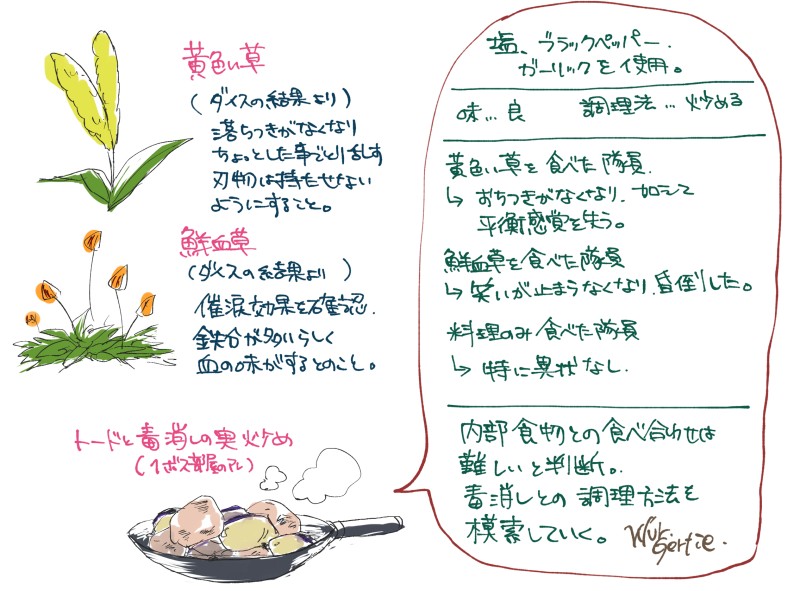 黄色い草
(ダイスの結果より)
落ちつきがなくなり
ちょっとした事でとり乱す
刃物は持たせない
ようにすること。
鮮血草
(ダイスの結果より)
催涙効果を確認.
鉄分が多いらしく
血の味がするとのこと。
トードと毒消しの実炒め
(1ボス部屋のアレ)
塩、ブラックペッパー.
ガーリックを使用。
味…良 調理法…炒める
黄色い草を食べた隊員.
↳ おちつきがなくなり、加えて
平衡感覚を失う。
鮮血草を食べた隊員
↳ 笑いが止まらなくなり、昏倒した。
料理のみ食べた隊員
↳ 特に異状なし.
内部食物との食べ合わせは
難しいと判断。
毒消しとの調理方法を
模索していく。